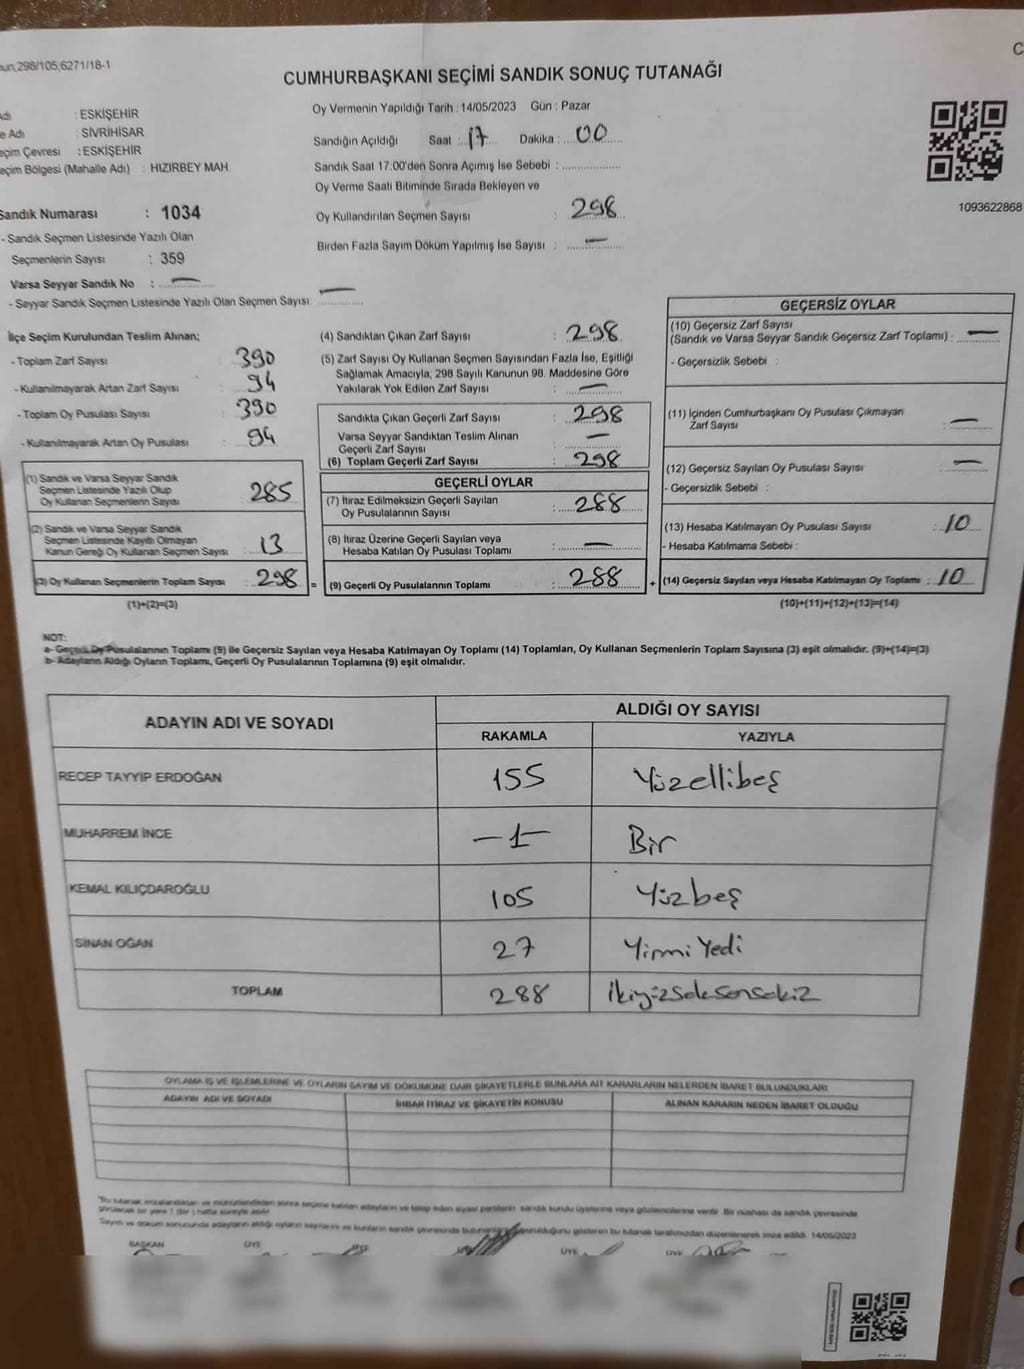 298/105;6271/18-1
CUMHURBAŞKANI SEÇİMİ SANDIK SONUÇ TUTANAĞI
: ESKİŞEHİR
Adı : SİVRİHİSAR
Seçim Çevresi : ESKİŞEHİR
Seçim Bölgesi (Mahalle Adı) : HIZIRBEY MAH.
Oy Vermenin Yapıldığı Tarih : 14/05/2023 Gün : Pazar
Sandığın Açıldığı Saat : 17 Dakika : 00
Sandık Saat 17:00'den Sonra Açımış İse Sebebi :
Oy Verme Saati Bitiminde Sırada Bekleyen ve
Oy Kullandırılan Seçmen Sayısı : 298
Birden Fazla Sayım Döküm Yapılmış İse Sayısı : —
1093622868
Sandık Numarası : 1034
- Sandık Seçmen Listesinde Yazılı Olan
Seçmenlerin Sayısı : 359
Varsa Seyyar Sandık No : —
- Seyyar Sandık Seçmen Listesinde Yazılı Olan Seçmen Sayısı: —
İlçe Seçim Kurulundan Teslim Alınan;
- Toplam Zarf Sayısı 390
- Kullanılmayarak Artan Zarf Sayısı 94
- Toplam Oy Pusulası Sayısı 390
- Kullanılmayarak Artan Oy Pusulası 94
(1) Sandık ve Varsa Seyyar Sandık
Seçmen Listesinde Yazılı Olup
Oy Kullanan Seçmenlerin Sayısı : 285
(2) Sandık ve Varsa Seyyar Sandık
Seçmen Listesinde Kayıtlı Olmayan
Kanun Gereği Oy Kullanan Seçmen Sayısı : 13
(3) Oy Kullanan Seçmenlerin Toplam Sayısı : 298
(1)+(2)=(3)
(4) Sandıktan Çıkan Zarf Sayısı : 298
(5) Zarf Sayısı Oy Kullanan Seçmen Sayısından Fazla İse, Eşitliği
Sağlamak Amacıyla; 298 Sayılı Kanunun 98. Maddesine Göre
Yakılarak Yok Edilen Zarf Sayısı : —
Sandıkta Çıkan Geçerli Zarf Sayısı : 298
Varsa Seyyar Sandıktan Teslim Alınan
Geçerli Zarf Sayısı : —
(6) Toplam Geçerli Zarf Sayısı : 298
GEÇERLİ OYLAR
(7) İtiraz Edilmeksizin Geçerli Sayılan
Oy Pusulalarının Sayısı : 288
(8) İtiraz Üzerine Geçerli Sayılan veya
Hesaba Katılan Oy Pusulası Toplamı : —
= (9) Geçerli Oy Pusulalarının Toplamı : 288 +
GEÇERSİZ OYLAR
(10) Geçersiz Zarf Sayısı
(Sandık ve Varsa Seyyar Sandık Geçersiz Zarf Toplamı) : —
- Geçersizlik Sebebi :
(11) İçinden Cumhurbaşkanı Oy Pusulası Çıkmayan
Zarf Sayısı : —
(12) Geçersiz Sayılan Oy Pusulası Sayısı : —
- Geçersizlik Sebebi :
(13) Hesaba Katılmayan Oy Pusulası Sayısı : 10
- Hesaba Katılmama Sebebi :
(14) Geçersiz Sayılan veya Hesaba Katılmayan Oy Toplamı : 10
(10)+(11)+(12)+(13)=(14)
NOT:
a- Geçerli Oy Pusulalarının Toplamı (9) ile Geçersiz Sayılan veya Hesaba Katılmayan Oy Toplamı (14) Toplamları, Oy Kullanan Seçmenlerin Toplam Sayısına (3) eşit olmalıdır. (9)+(14)=(3)
b- Adayların Aldığı Oyların Toplamı, Geçerli Oy Pusulalarının Toplamına (9) eşit olmalıdır.
ADAYIN ADI VE SOYADI ALDIĞI OY SAYISI
RAKAMLA YAZIYLA
RECEP TAYYİP ERDOĞAN 155 Yüzellibeş
MUHARREM İNCE —1— Bir
KEMAL KILIÇDAROĞLU 105 Yüzbeş
SİNAN OĞAN 27 Yirmi Yedi
TOPLAM 288 İkiyüzseksensekiz
OYLAMA İŞ VE İŞLEMLERİNE VE OYLARIN SAYIM VE DÖKÜMÜNE DAİR ŞİKAYETLERLE BUNLARA AİT KARARLARIN NELERDEN İBARET BULUNDUKLARI
ADAYIN ADI VE SOYADI İHBAR İTİRAZ VE ŞİKAYETİN KONUSU ALINAN KARARIN NEDEN İBARET OLDUĞU
"Bu tutanak imzalandıktan ve mühürlendikten sonra seçime katılan adayların ve talep eden siyasi partilerin sandık kurulu üyelerine veya gözlemcilerine verilir. Bir nüshası da sandık çevresinde
görülecek bir yere 1 (bir) hafta süreyle asılır.
Sayım ve döküm sonucunda adayların aldığı oyların sayımını ve bunların sandık çevresinde gösteren bu tutanak tarafımızdan düzenlenerek imza edildi. 14/05/2023
BAŞKAN ÜYE ÜYE ÜYE